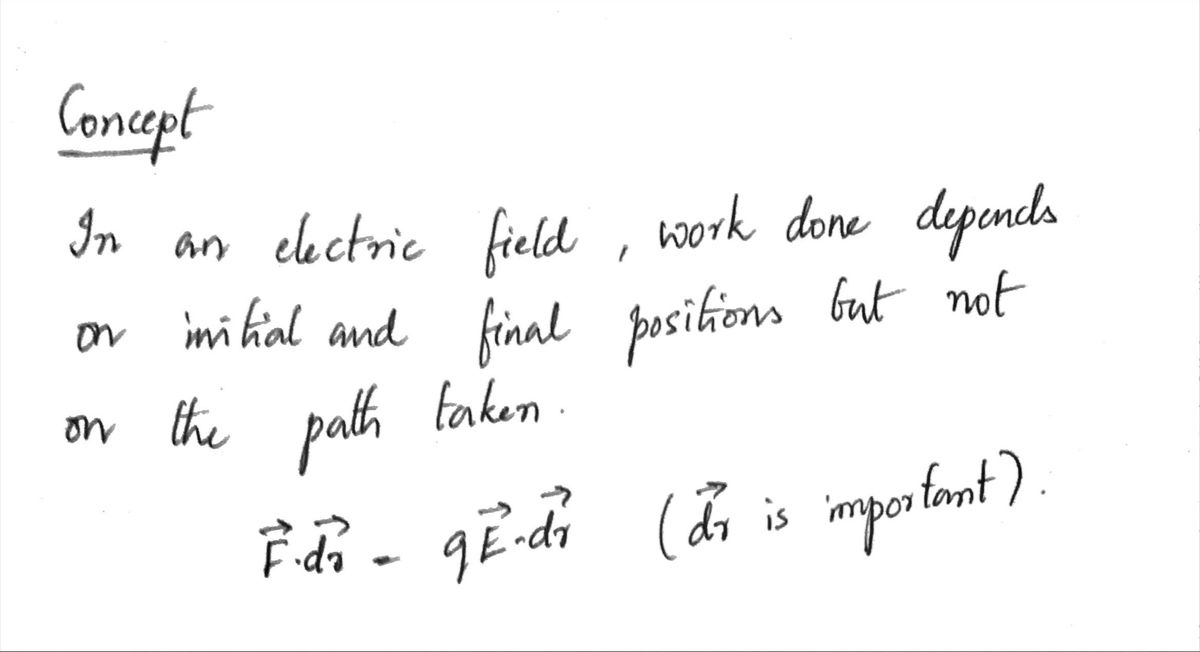 Concept
In an electric field, work done depends
on initial and final positions but not
on the path taken.
F⃗.dr⃗ - qE⃗.dr⃗ (dr⃗ is important).